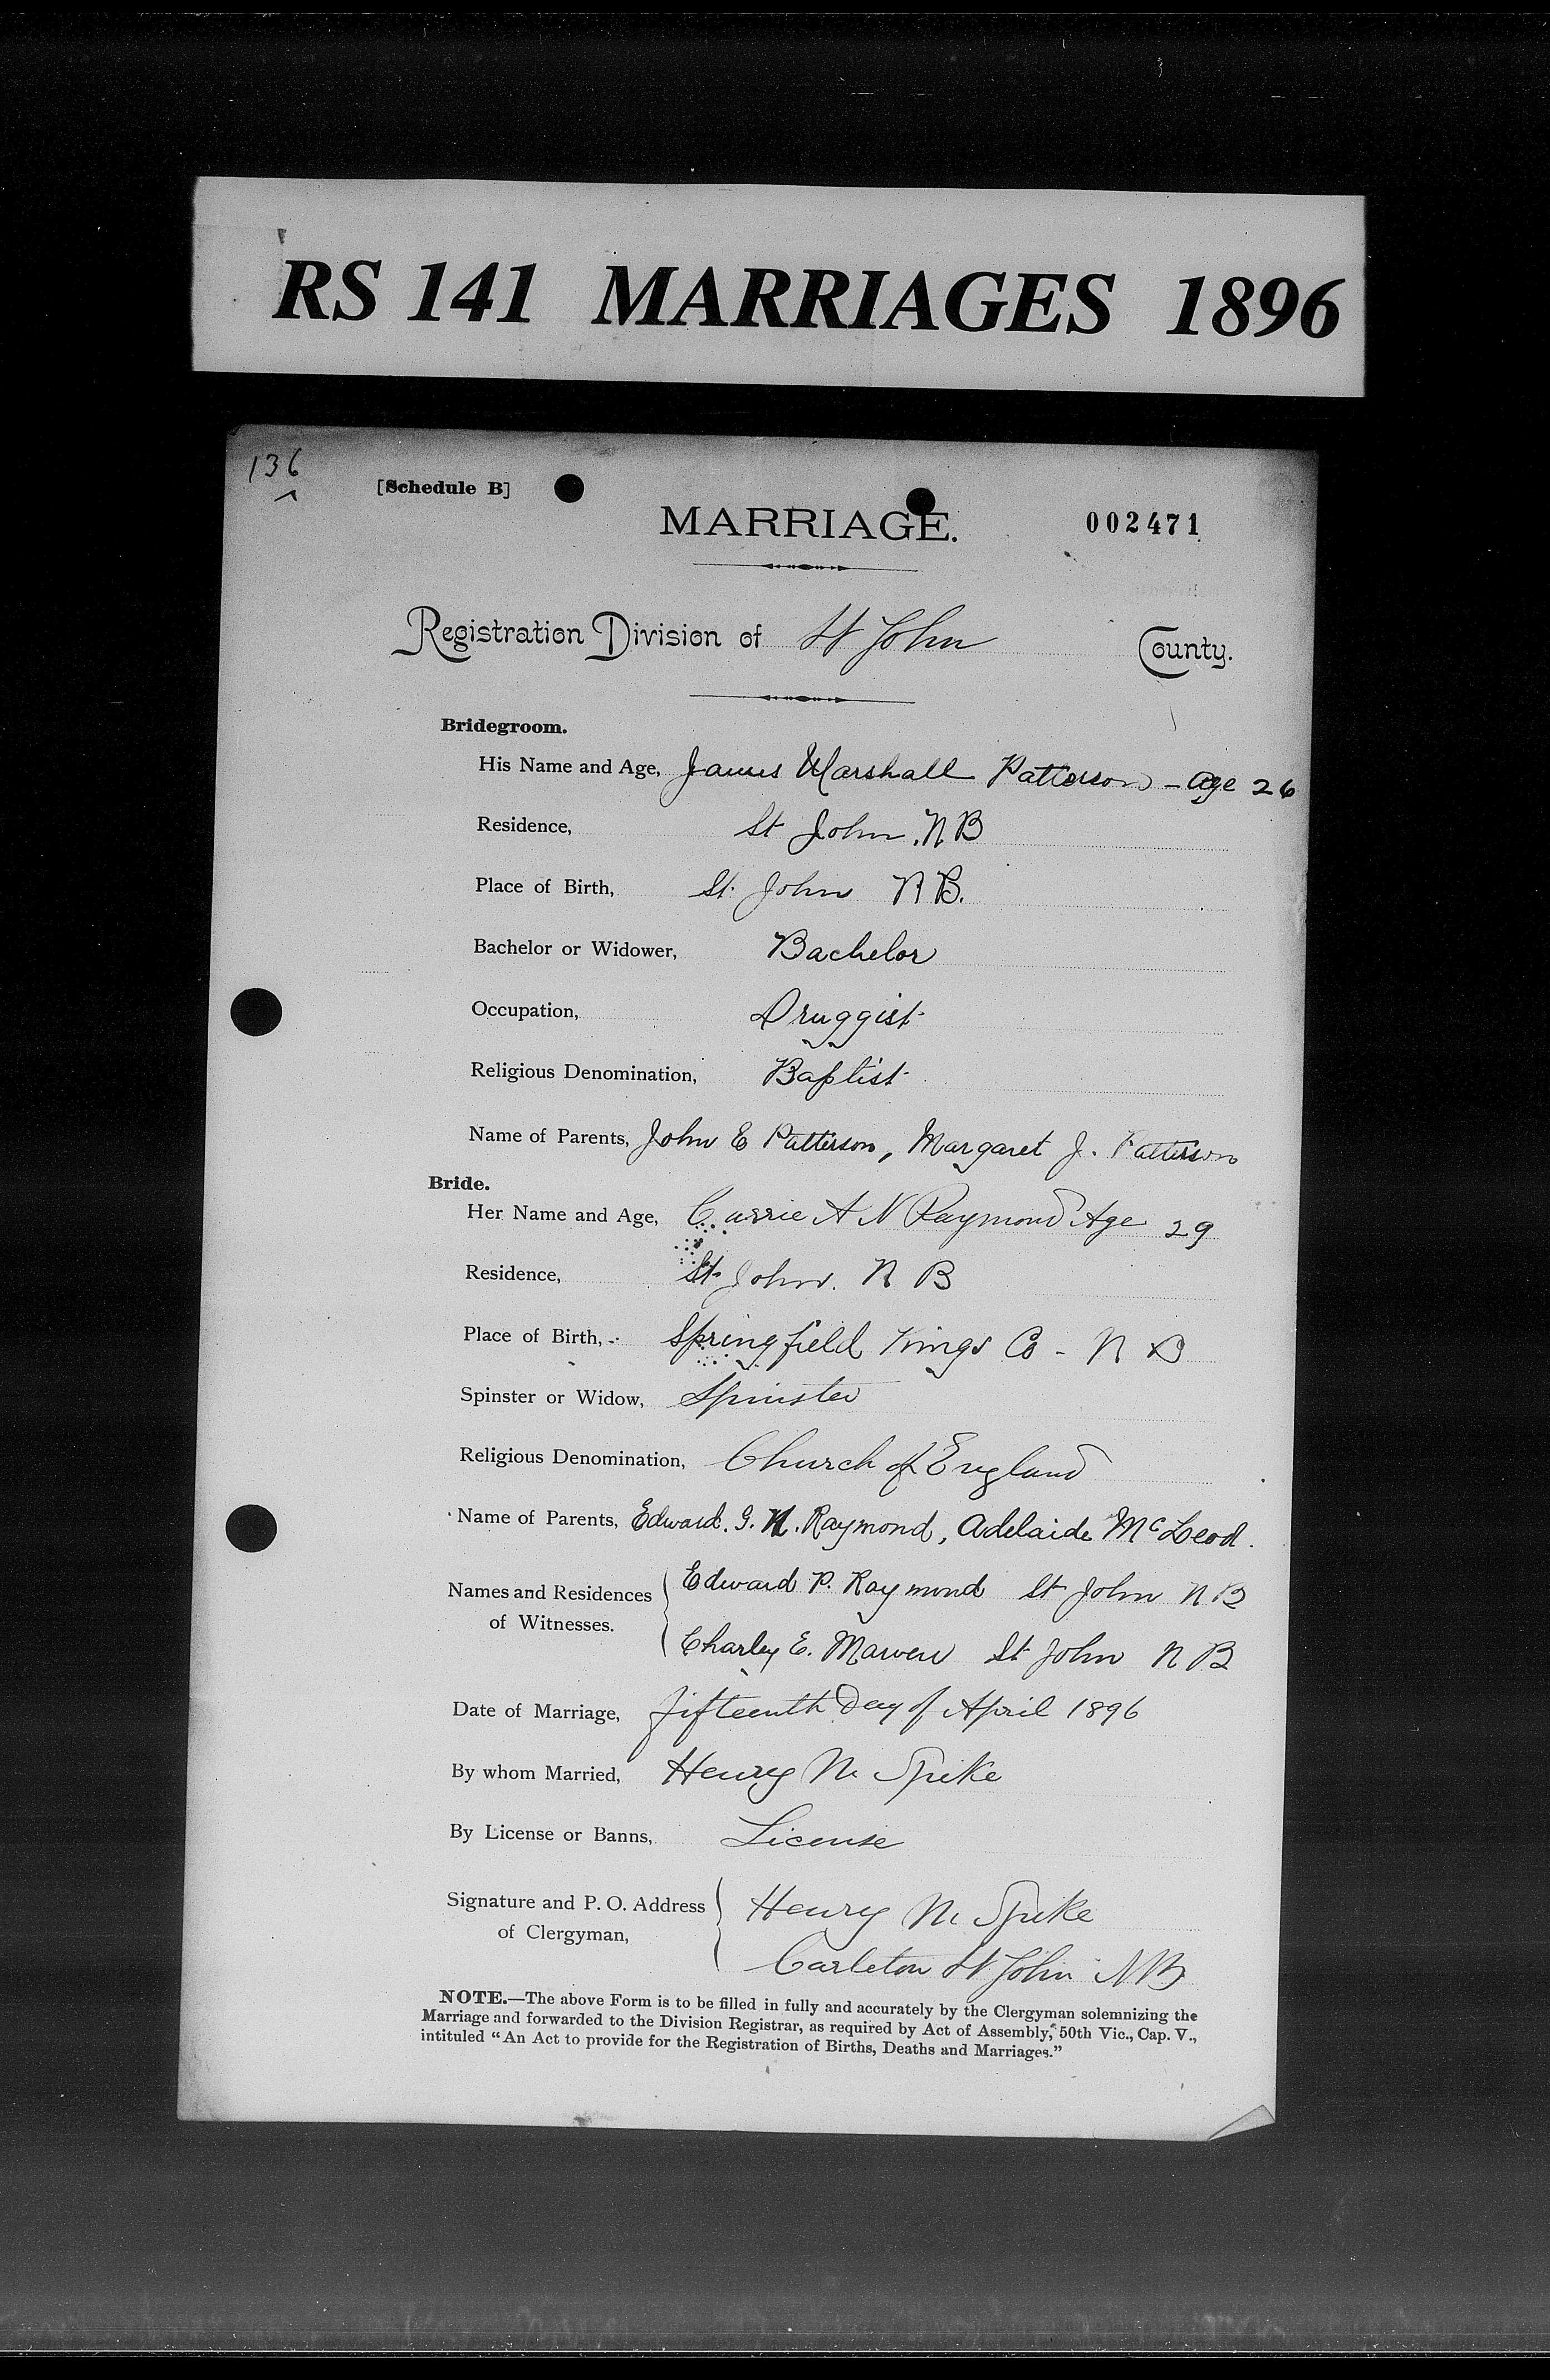 RS 141 MARRIAGES 1896
136
[Schedule B]
MARRIAGE.
002471
Registration Division of St John County.
Bridegroom.
His Name and Age, James Marshall Patterson - Age 26
Residence, St John, N B
Place of Birth, St. John N B.
Bachelor or Widower, Bachelor
Occupation, Druggist
Religious Denomination, Baptist
Name of Parents, John E Patterson, Margaret J. Patterson
Bride.
Her Name and Age, Carrie A N Raymond Age 29
Residence, St. John. N B
Place of Birth, Springfield Kings Co - N B
Spinster or Widow, Spinster
Religious Denomination, Church of England
Name of Parents, Edward. G. N. Raymond, Adelaide McLeod.
Names and Residences of Witnesses.
Edward P. Raymond St John N B
Charley E. St John N B
Date of Marriage, fifteenth Day of April 1896
By whom Married, Henry M Spike
By License or Banns, License
Signature and P. O. Address of Clergyman,
Henry M Spike
Carleton St John NB
NOTE.—The above Form is to be filled in fully and accurately by the Clergyman solemnizing the
Marriage and forwarded to the Division Registrar, as required by Act of Assembly, 50th Vic., Cap. V.,
intituled "An Act to provide for the Registration of Births, Deaths and Marriages."